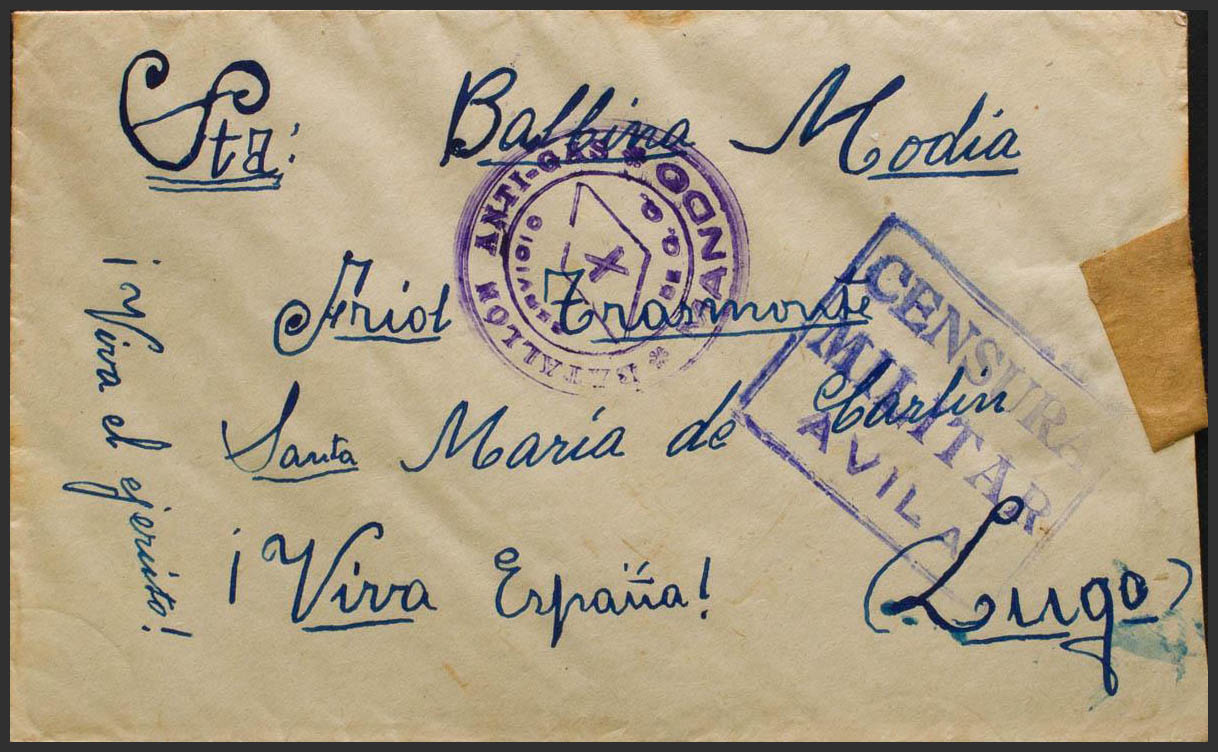 Sta: Balbina Modia
Friol Trasmonte
Santa María de Carlin
¡Viva España!
(Lugo)
¡Viva el ejercito!
BATALLÓN ANTI-GAS * MANDO *
SERVICIO DE
CENSURA
MILITAR
AVILA